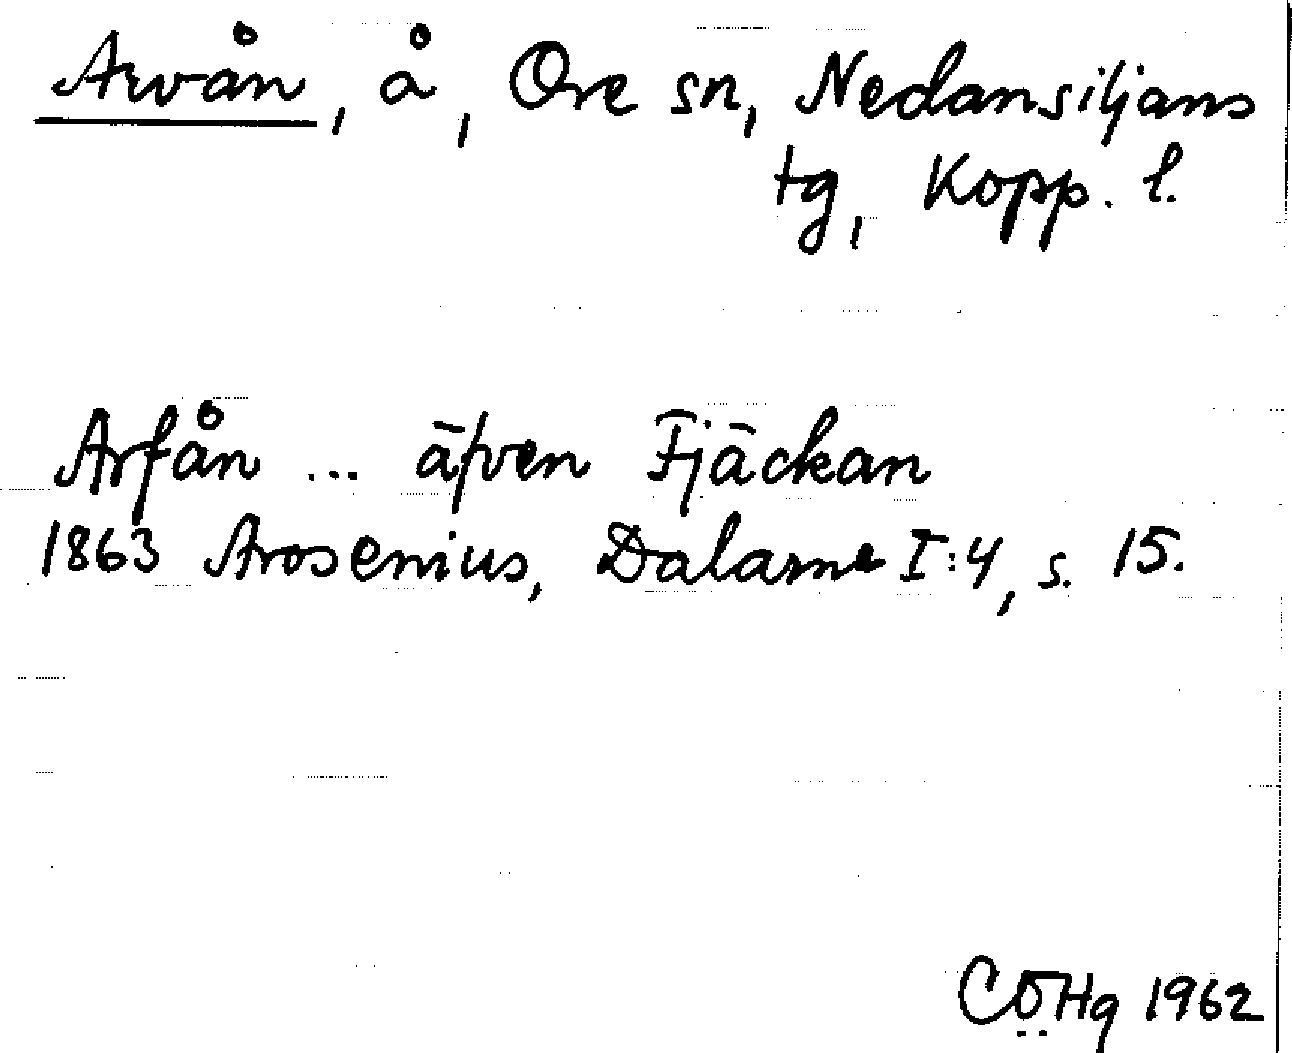 Arvån, å, Ore sn, Nedansiljans
tg, Kopp. l.
Arfån ... äfven Fjäckan
1863 Arosenius, Dalarne I:4, s. 15.
CÖHg 1962